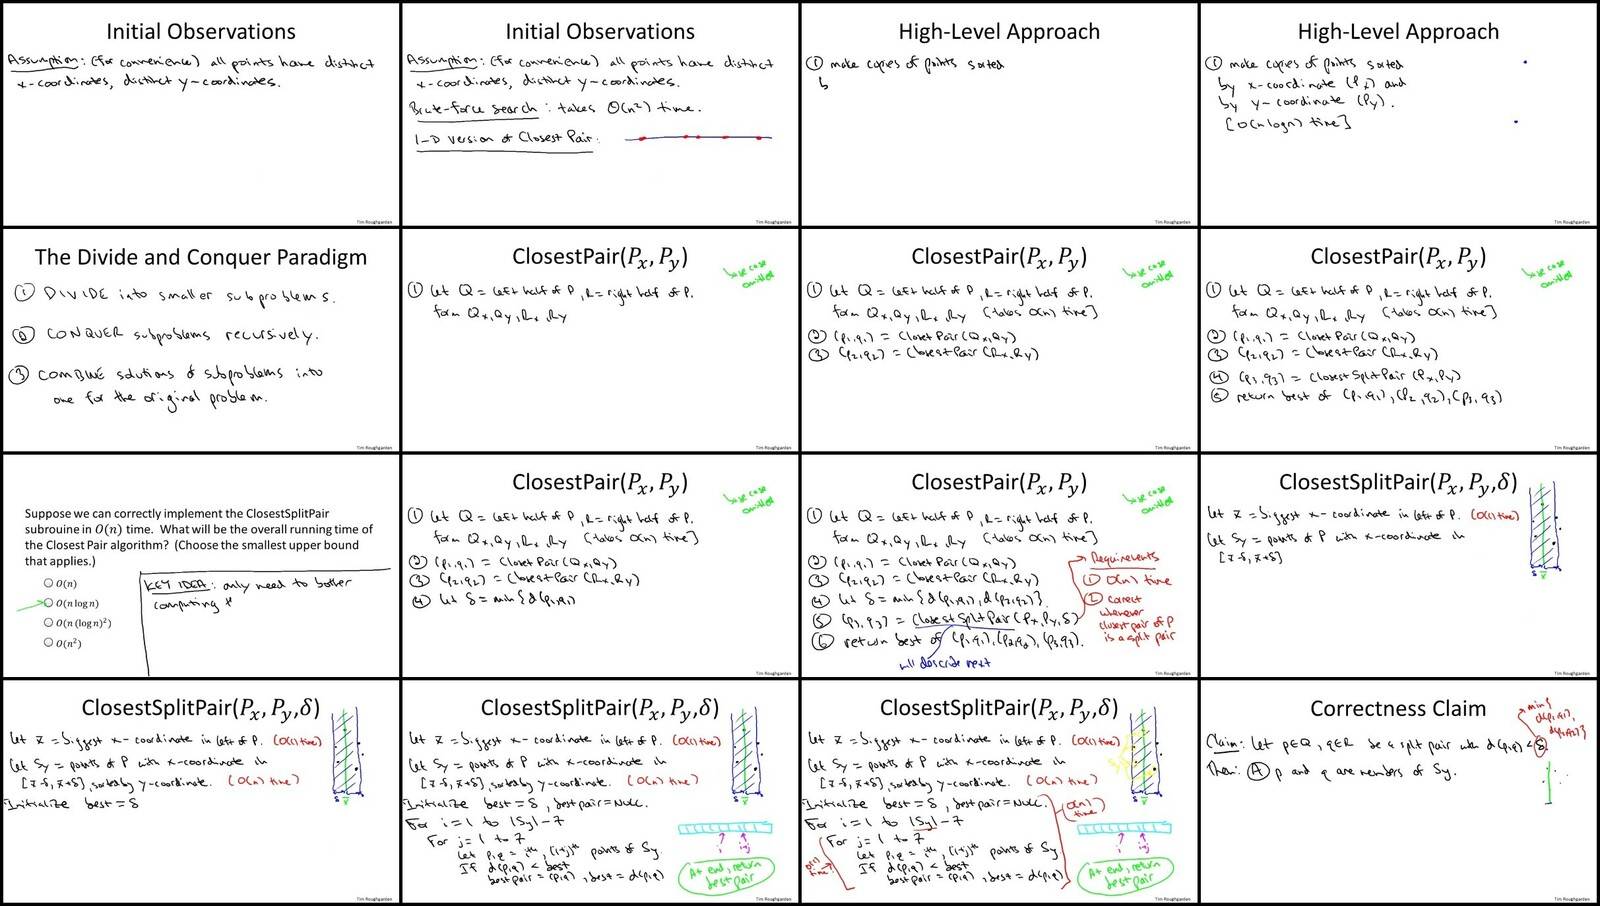 Initial Observations
Assumption: (for convenience) all points have distinct
x-coordinates, distinct y-coordinates.
Tim Roughgarden
Initial Observations
Assumption: (for convenience) all points have distinct
x-coordinates, distinct y-coordinates.
Brute-force search: takes Θ(n²) time.
1-D Version of Closest Pair:
Tim Roughgarden
High-Level Approach
① make copies of points sorted
b
Tim Roughgarden
High-Level Approach
① make copies of points sorted
by x-coordinate (Px) and
by y-coordinate (Py).
[O(n log n) time]
Tim Roughgarden
The Divide and Conquer Paradigm
① DIVIDE into smaller subproblems.
② CONQUER subproblems recursively.
③ COMBINE solutions of subproblems into
one for the original problem.
Tim Roughgarden
ClosestPair(Px, Py)
base case
omitted
① Let Q = left half of P, R = right half of P.
form Qx, Qy, Rx, Ry
Tim Roughgarden
ClosestPair(Px, Py)
base case
omitted
① Let Q = left half of P, R = right half of P.
form Qx, Qy, Rx, Ry (takes O(n) time]
② (p1,q1) = ClosestPair(Qx,Qy)
③ (p2,q2) = ClosestPair(Rx,Ry)
Tim Roughgarden
ClosestPair(Px, Py)
base case
omitted
① Let Q = left half of P, R = right half of P.
form Qx, Qy, Rx, Ry (takes O(n) time]
② (p1,q1) = ClosestPair(Qx,Qy)
③ (p2,q2) = ClosestPair(Rx,Ry)
④ (p3,q3) = ClosestSplitPair(Px,Py)
⑤ return best of (p1,q1), (p2,q2), (p3,q3)
Tim Roughgarden
Suppose we can correctly implement the ClosestSplitPair
subrouine in O(n) time. What will be the overall running time of
the Closest Pair algorithm? (Choose the smallest upper bound
that applies.)
O(n)
O(n log n)
O(n (log n)²)
O(n²)
KEY IDEA: only need to bother
computing t
Tim Roughgarden
ClosestPair(Px, Py)
base case
omitted
① Let Q = left half of P, R = right half of P.
form Qx, Qy, Rx, Ry (takes O(n) time]
② (p1,q1) = ClosestPair(Qx,Qy)
③ (p2,q2) = ClosestPair(Rx,Ry)
④ Let δ = min{d(p1,q1)
Tim Roughgarden
ClosestPair(Px, Py)
base case
omitted
① Let Q = left half of P, R = right half of P.
form Qx, Qy, Rx, Ry (takes O(n) time]
② (p1,q1) = ClosestPair(Qx,Qy)
③ (p2,q2) = ClosestPair(Rx,Ry)
④ Let δ = min{d(p1,q1), d(p2,q2)}.
⑤ (p3,q3) = ClosestSplitPair(Px,Py,δ)
⑥ return best of (p1,q1), (p2,q2), (p3,q3).
will describe next
Requirements
① O(n) time
② correct
whenever
closest pair of P
is a split pair
Tim Roughgarden
ClosestSplitPair(Px, Py, δ)
Let x̄ = biggest x-coordinate in left of P. (O(1) time)
Let Sy = points of P with x-coordinate in
[x̄-δ, x̄+δ]
δ x̄
Tim Roughgarden
ClosestSplitPair(Px, Py, δ)
Let x̄ = biggest x-coordinate in left of P. (O(1) time)
Let Sy = points of P with x-coordinate in
[x̄-δ, x̄+δ], sorted by y-coordinate. (O(n) time)
Initialize best = δ
δ x̄
Tim Roughgarden
ClosestSplitPair(Px, Py, δ)
Let x̄ = biggest x-coordinate in left of P. (O(1) time)
Let Sy = points of P with x-coordinate in
[x̄-δ, x̄+δ], sorted by y-coordinate. (O(n) time)
Initialize best = δ, best pair = NULL.
For i = 1 to |Sy|-7
For j = 1 to 7
Let p,q = ith, (i+j)th points of Sy
If d(p,q) < best
best pair = (p,q), best = d(p,q)
δ x̄
i i+j
At end, return
best pair
Tim Roughgarden
ClosestSplitPair(Px, Py, δ)
Let x̄ = biggest x-coordinate in left of P. (O(1) time)
Let Sy = points of P with x-coordinate in
[x̄-δ, x̄+δ], sorted by y-coordinate. (O(n) time)
Initialize best = δ, best pair = NULL.
For i = 1 to |Sy|-7
For j = 1 to 7
Let p,q = ith, (i+j)th points of Sy
If d(p,q) < best
best pair = (p,q), best = d(p,q)
O(1)
time
O(n)
time
Sy
δ x̄
i i+j
At end, return
best pair
Tim Roughgarden
Correctness Claim
min{
d(p1,q1),
d(p2,q2)}
Claim: Let p∈Q, q∈R be a split pair with d(p,q) < δ
Then: Ⓐ p and q are members of Sy.
Tim Roughgarden